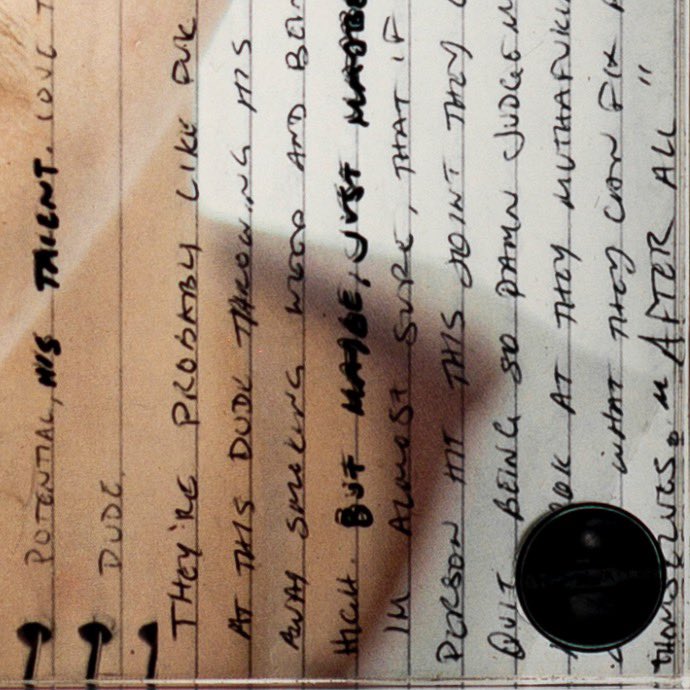 POTENTIAL, HIS TALENT. LOVE
DUDE.
THEY'RE PROBABLY LIKE FUK
AT THIS DUDE THROWING HIS
AWAY SMOKING WEED AND BEIN
HIGH. BUT MAYBE, JUST MAYBE
IM ALMOST SURE, THAT IF
PERSON HIT THIS JOINT THEY
QUIT BEING SO DAMN JUDGEM
AT THEY MUTHAFUKIN
WHAT THEY CAN FIX
THEMSELVES. AFTER ALL "